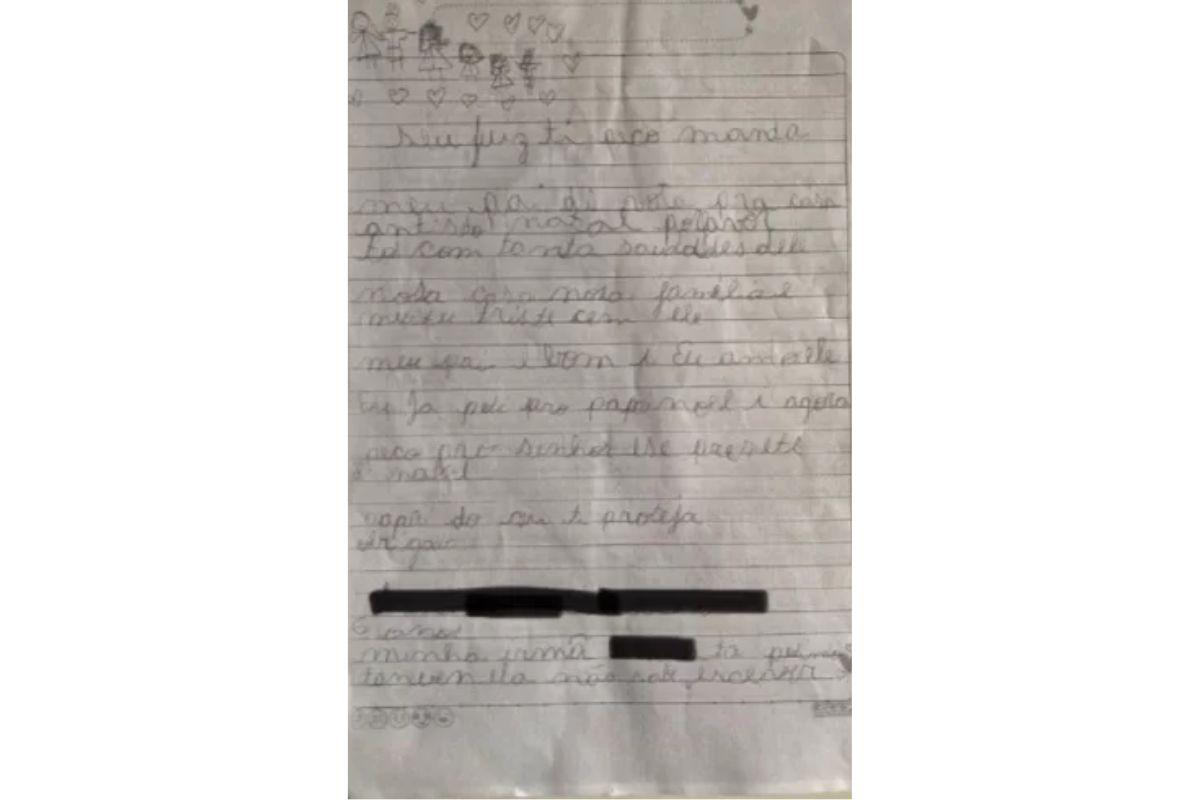 seu juiz ti peço manda
meu pai di vota pra casa
antis do natal porfavor
to com tanta saudades dele
nosa casa nosa familia é
muito triste cem ele
meu pai é bom i Eu amo ele
Eu Ja pedi pro papai noel i agora
peço pro senhor ese prezete
natal
papai do ceu ti proteja
6 anos
minha irmã ta pedindo
tanben ela não sabe escrever